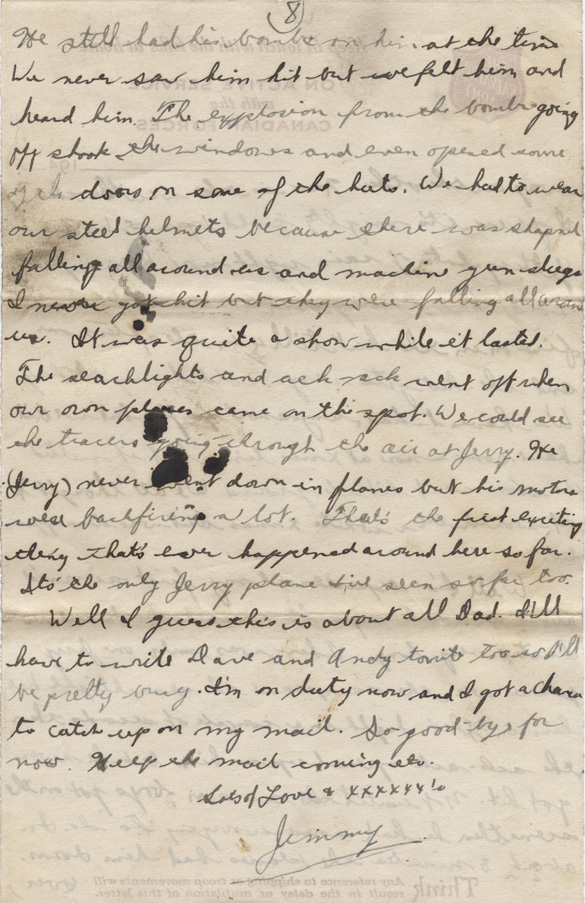 8
He still had his bombs on him at the time
We never saw him hit but we felt him and
heard him. The explosion from the bombs going
off shook the windows and even opened some
of the doors on some of the huts. We had to wear
our steel helmets because there was shapnel
falling all around us and machine gun slugs
I never got hit but they were falling all around
us. It was quite a show while it lasted.
The searchlights and ack ack went off when
our own planes came on the spot. We could see
the tracers going through the air at Jerry. He
(Jerry) never went down in planes but his motors
were backfiring a lot. That's the first exciting
thing that's ever happened around here so far.
It's the only Jerry plane I've seen so far too.
Well I guess this is about all Dad. I'll
have to write Dave and Andy tonite too so I'll
be pretty busy. I'm on duty now and I got a chance
to catch up on my mail. So good-by for
now. Keep the mail coming etc.
Lots of Love & xxxxxx's
Jimmy
Think
Any reference to shipping or troop movements will
result in the delay or mutilation of this letter.